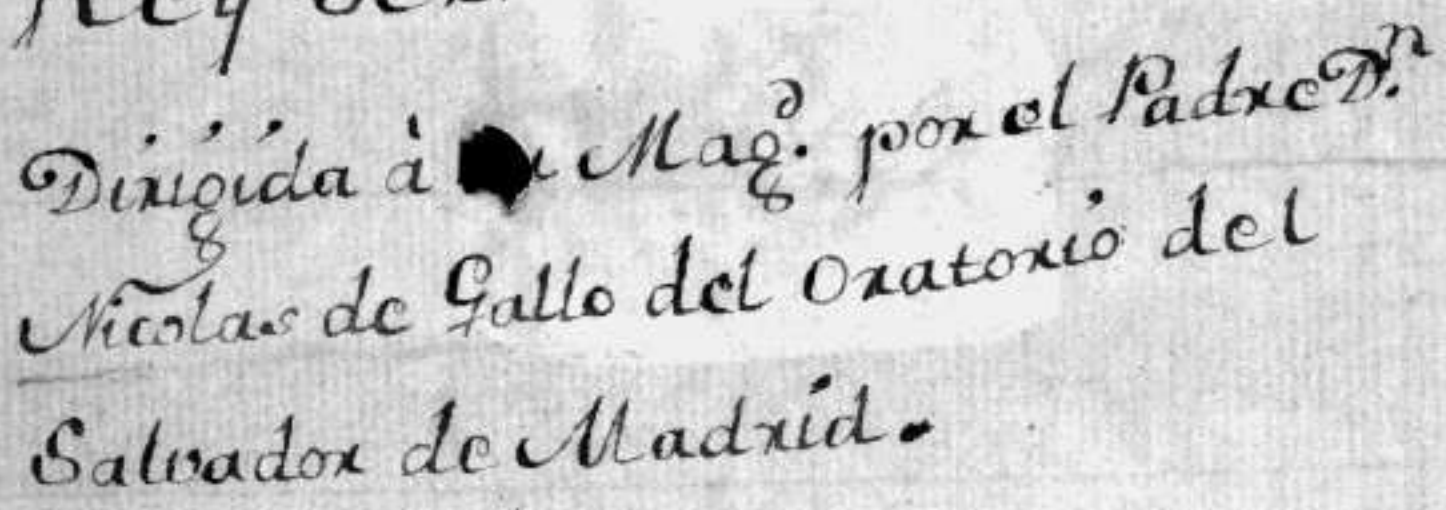 Rey
Dirigida à Mag.ᵈ por el Padre D.ⁿ
Nicolas de Gallo del Oratorio del
Salvador de Madrid.